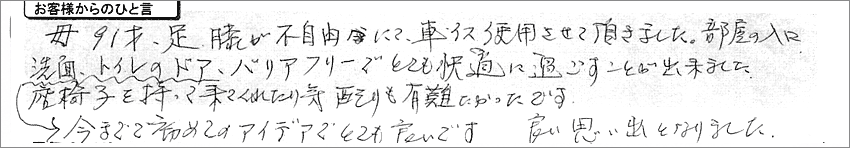 お客様からのひと言
母91才、足、膝が不自由にて、車イス使用させて頂きました。部屋の入口
洗面、トイレのドア、バリアフリーでとても快適に過ごすことが出来ました
座椅子を持って来てくれたり気配りも有難たかったです。
→今までで初めてのアイデアでとても良いです 良い思い出となりました。